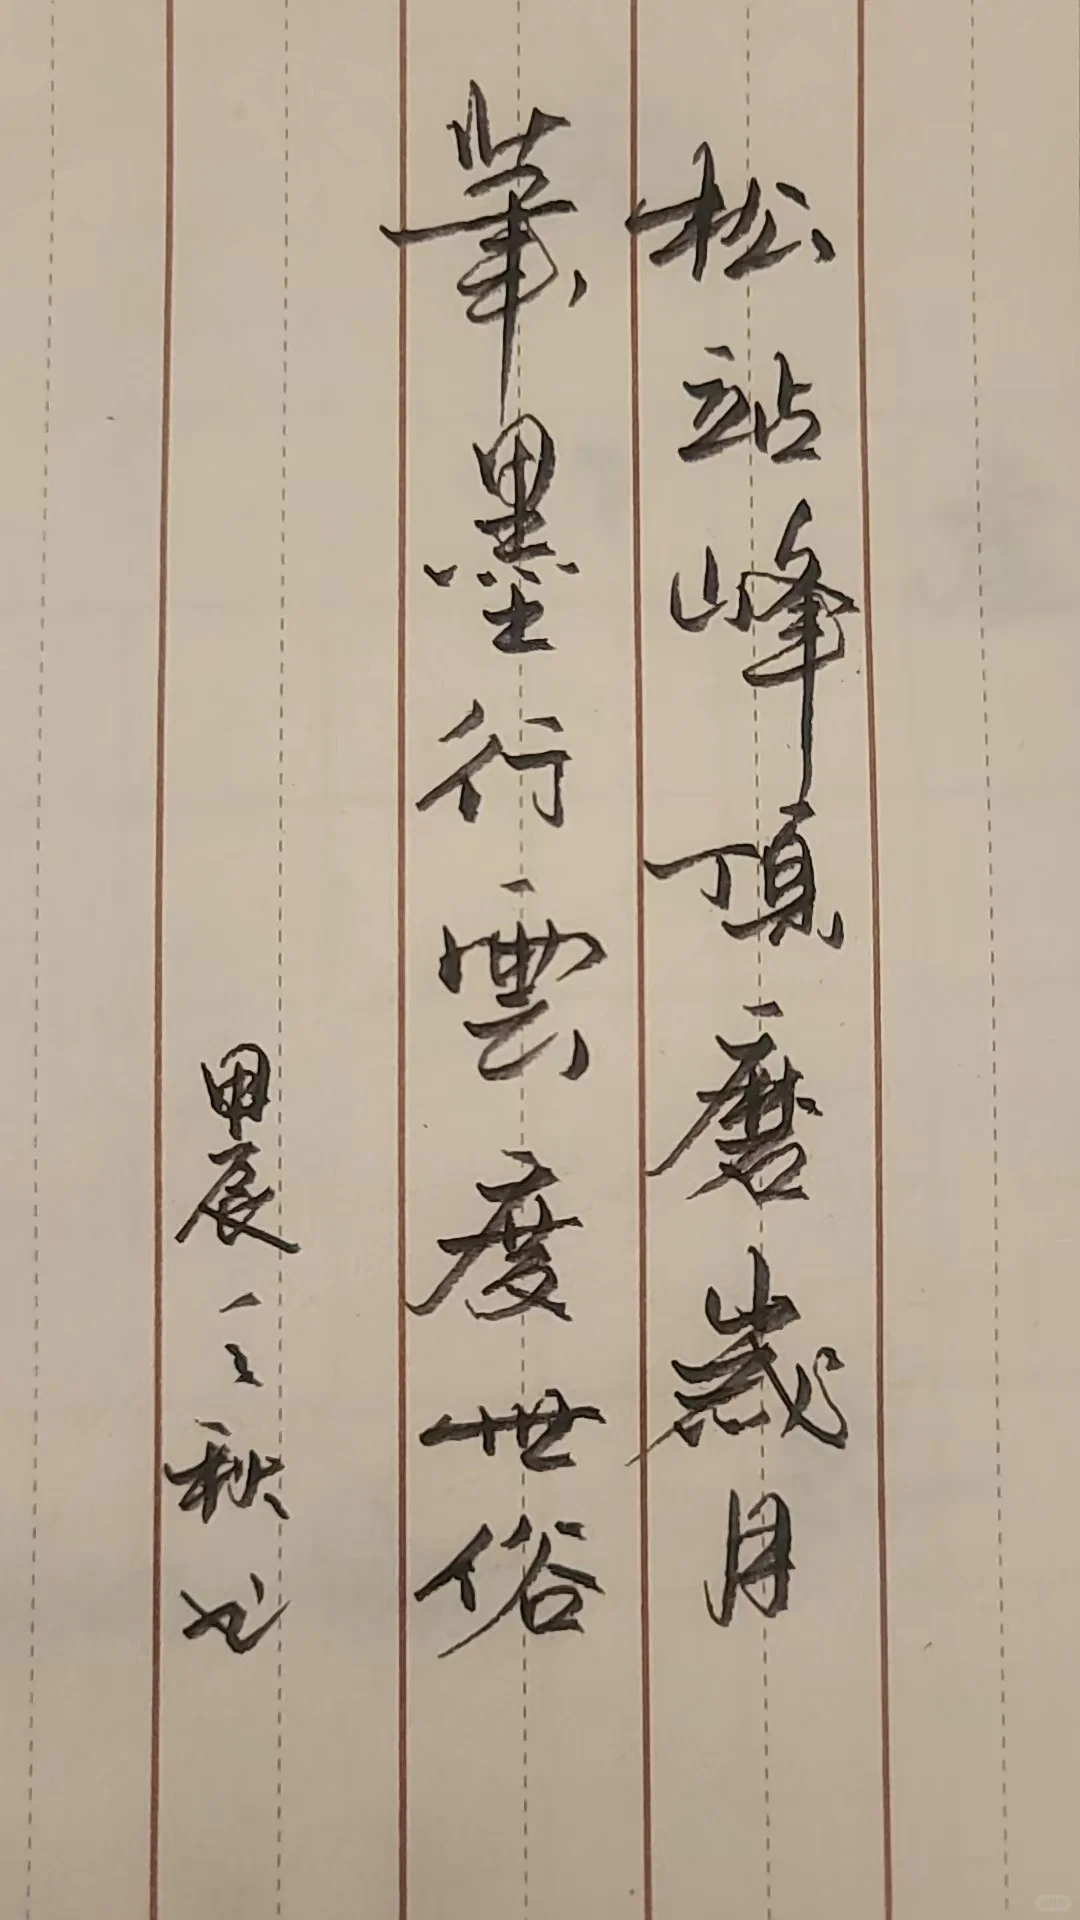 松站峰頂磨歲月
筆墨行雲度世俗
甲辰之秋书